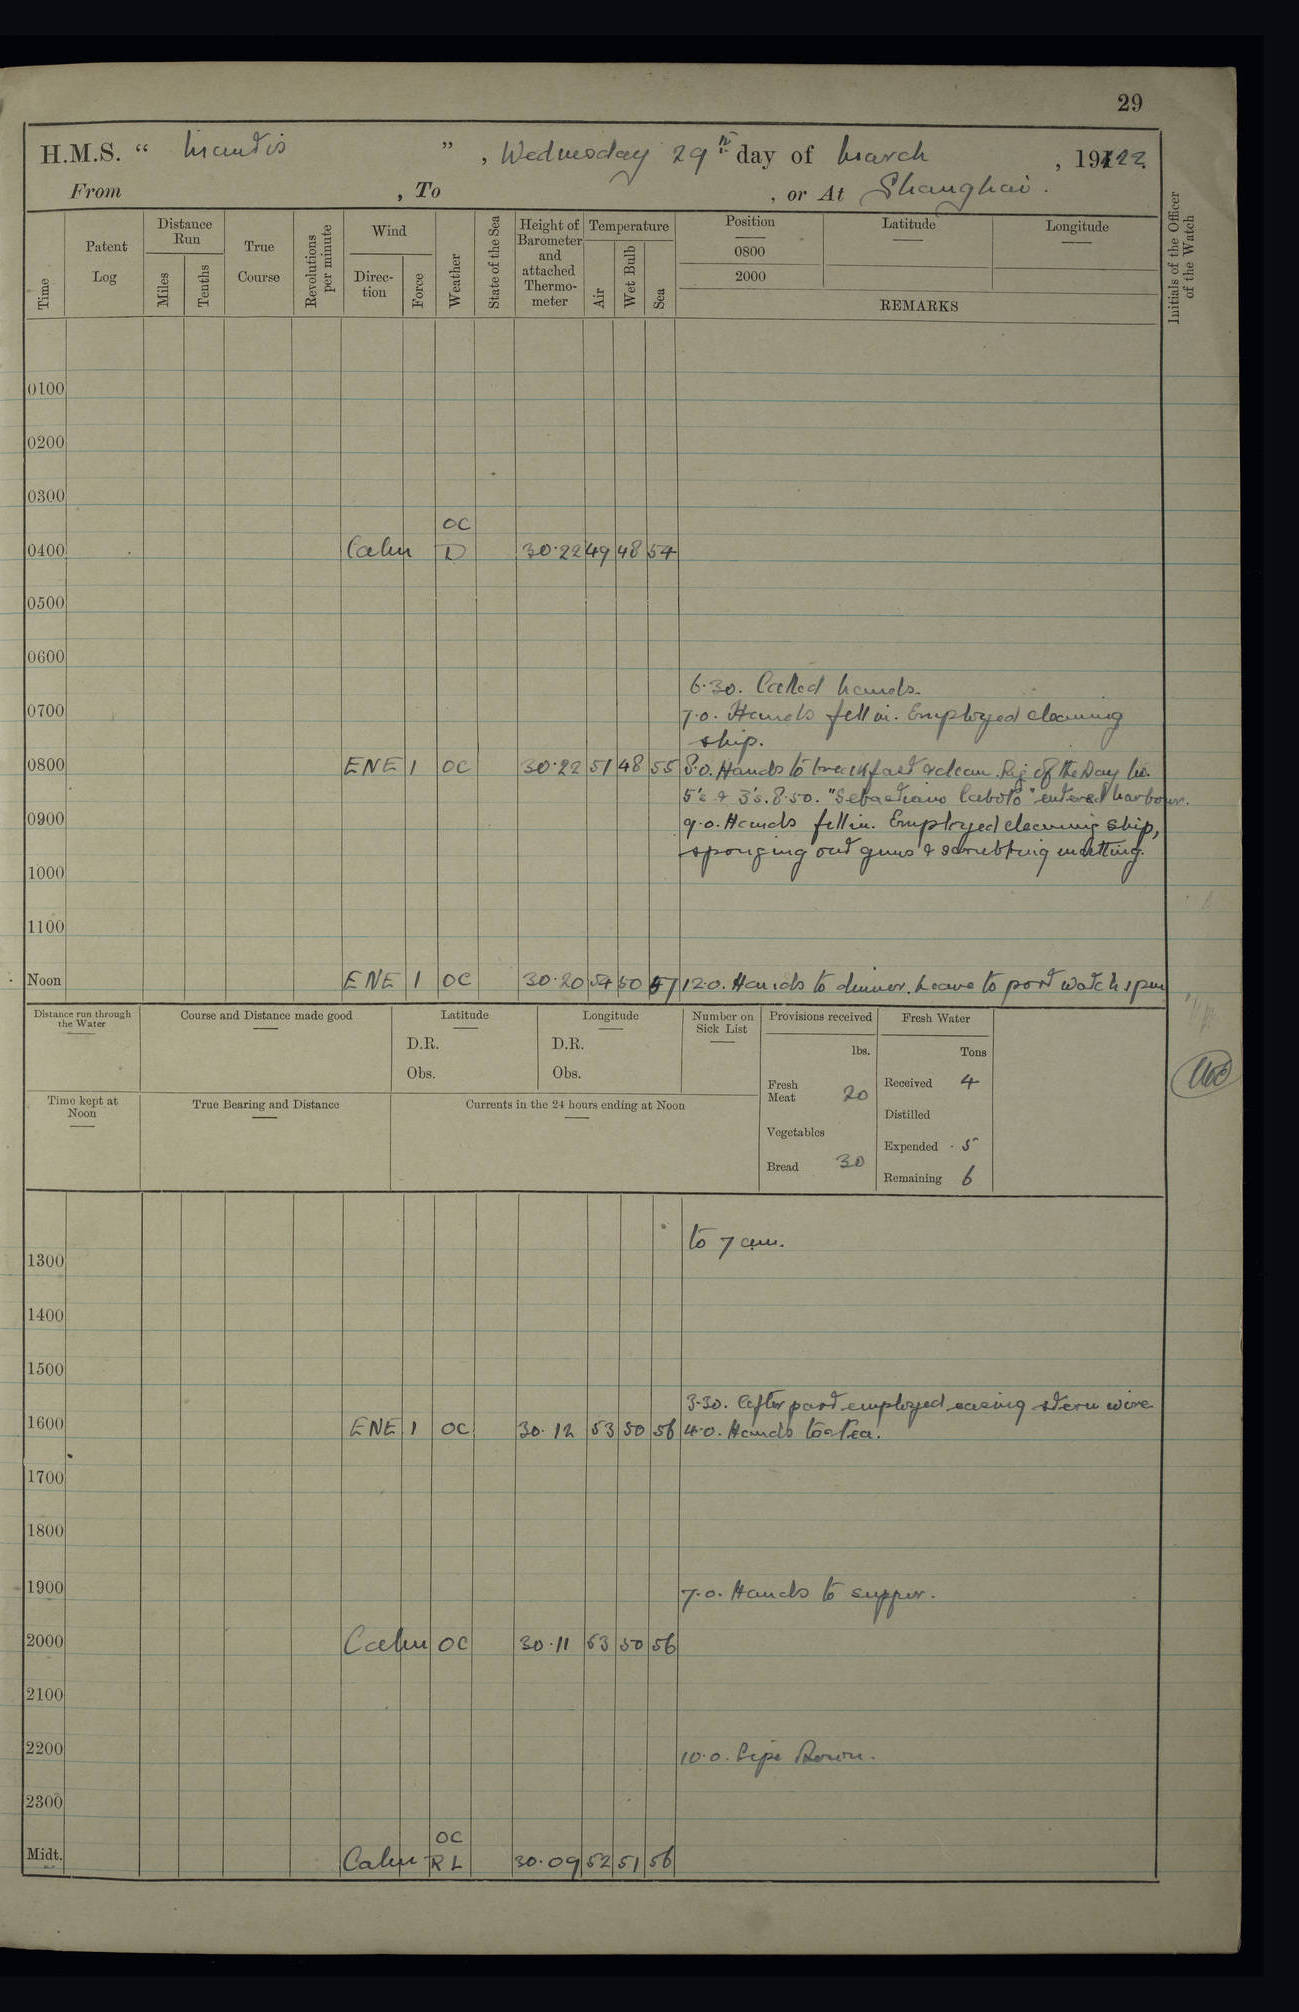 29
H.M.S. “ Mantis ” , Wednesday 29th day of March , 1922.
From , To , or At Shanghai .
Time
Patent Log
Distance Run
Miles
Tenths
True Course
Revolutions per minute
Wind
Direc- tion
Force
Weather
State of the Sea
Height of Barometer and attached Thermo- meter
Temperature
Air
Wet Bulb
Sea
Position
0800
2000
Latitude
Longitude
REMARKS
Initials of the Officer of the Watch
0100
0200
0300
OC
0400 Calm D 30.22 49 48 54
0500
0600
6.30. Called hands.
0700 7.0. Hands fell in. Employed cleaning
ship.
0800 ENE 1 OC 30.22 51 48 55 8.0. Hands to breakfast & clean. Rig of the Day
5's & 3's. 8.50. "Sebastiano Caboto" entered harbour.
0900 9.0. Hands fell in. Employed cleaning ship,
sponging out guns & scrubbing matting.
1000
1100
Noon ENE 1 OC 30.20 54 50 57 12.0. Hands to dinner. Leave to port watch 1 pm
Distance run through the Water
Course and Distance made good
Latitude
D.R.
Obs.
Longitude
D.R.
Obs.
Number on Sick List
Provisions received
lbs.
Fresh Meat 20
Vegetables
Bread 30
Fresh Water
Tons
Received 4
Distilled
Expended 5
Remaining 6
Time kept at Noon
True Bearing and Distance
Currents in the 24 hours ending at Noon
to 7 am.
1300
1400
1500
3.30. After part employed easing stern wire
1600 ENE 1 OC 30.12 53 50 56 4.0. Hands to Tea.
1700
1800
1900 7.0. Hands to supper.
2000 Calm OC 30.11 53 50 56
2100
2200 10.0. Pipe Down.
2300
OC
Midt. Calm R L 30.09 52 51 56